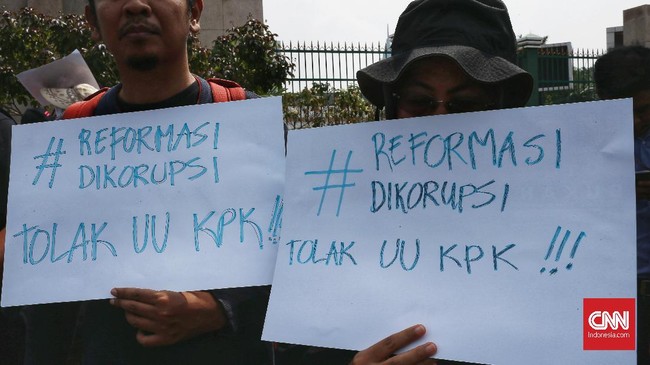 # REFORMASI
DIKORUPSI
TOLAK UU KPK !!!
# REFORMASI
DIKORUPSI
TOLAK UU KPK !!!
CNN
Indonesia.com